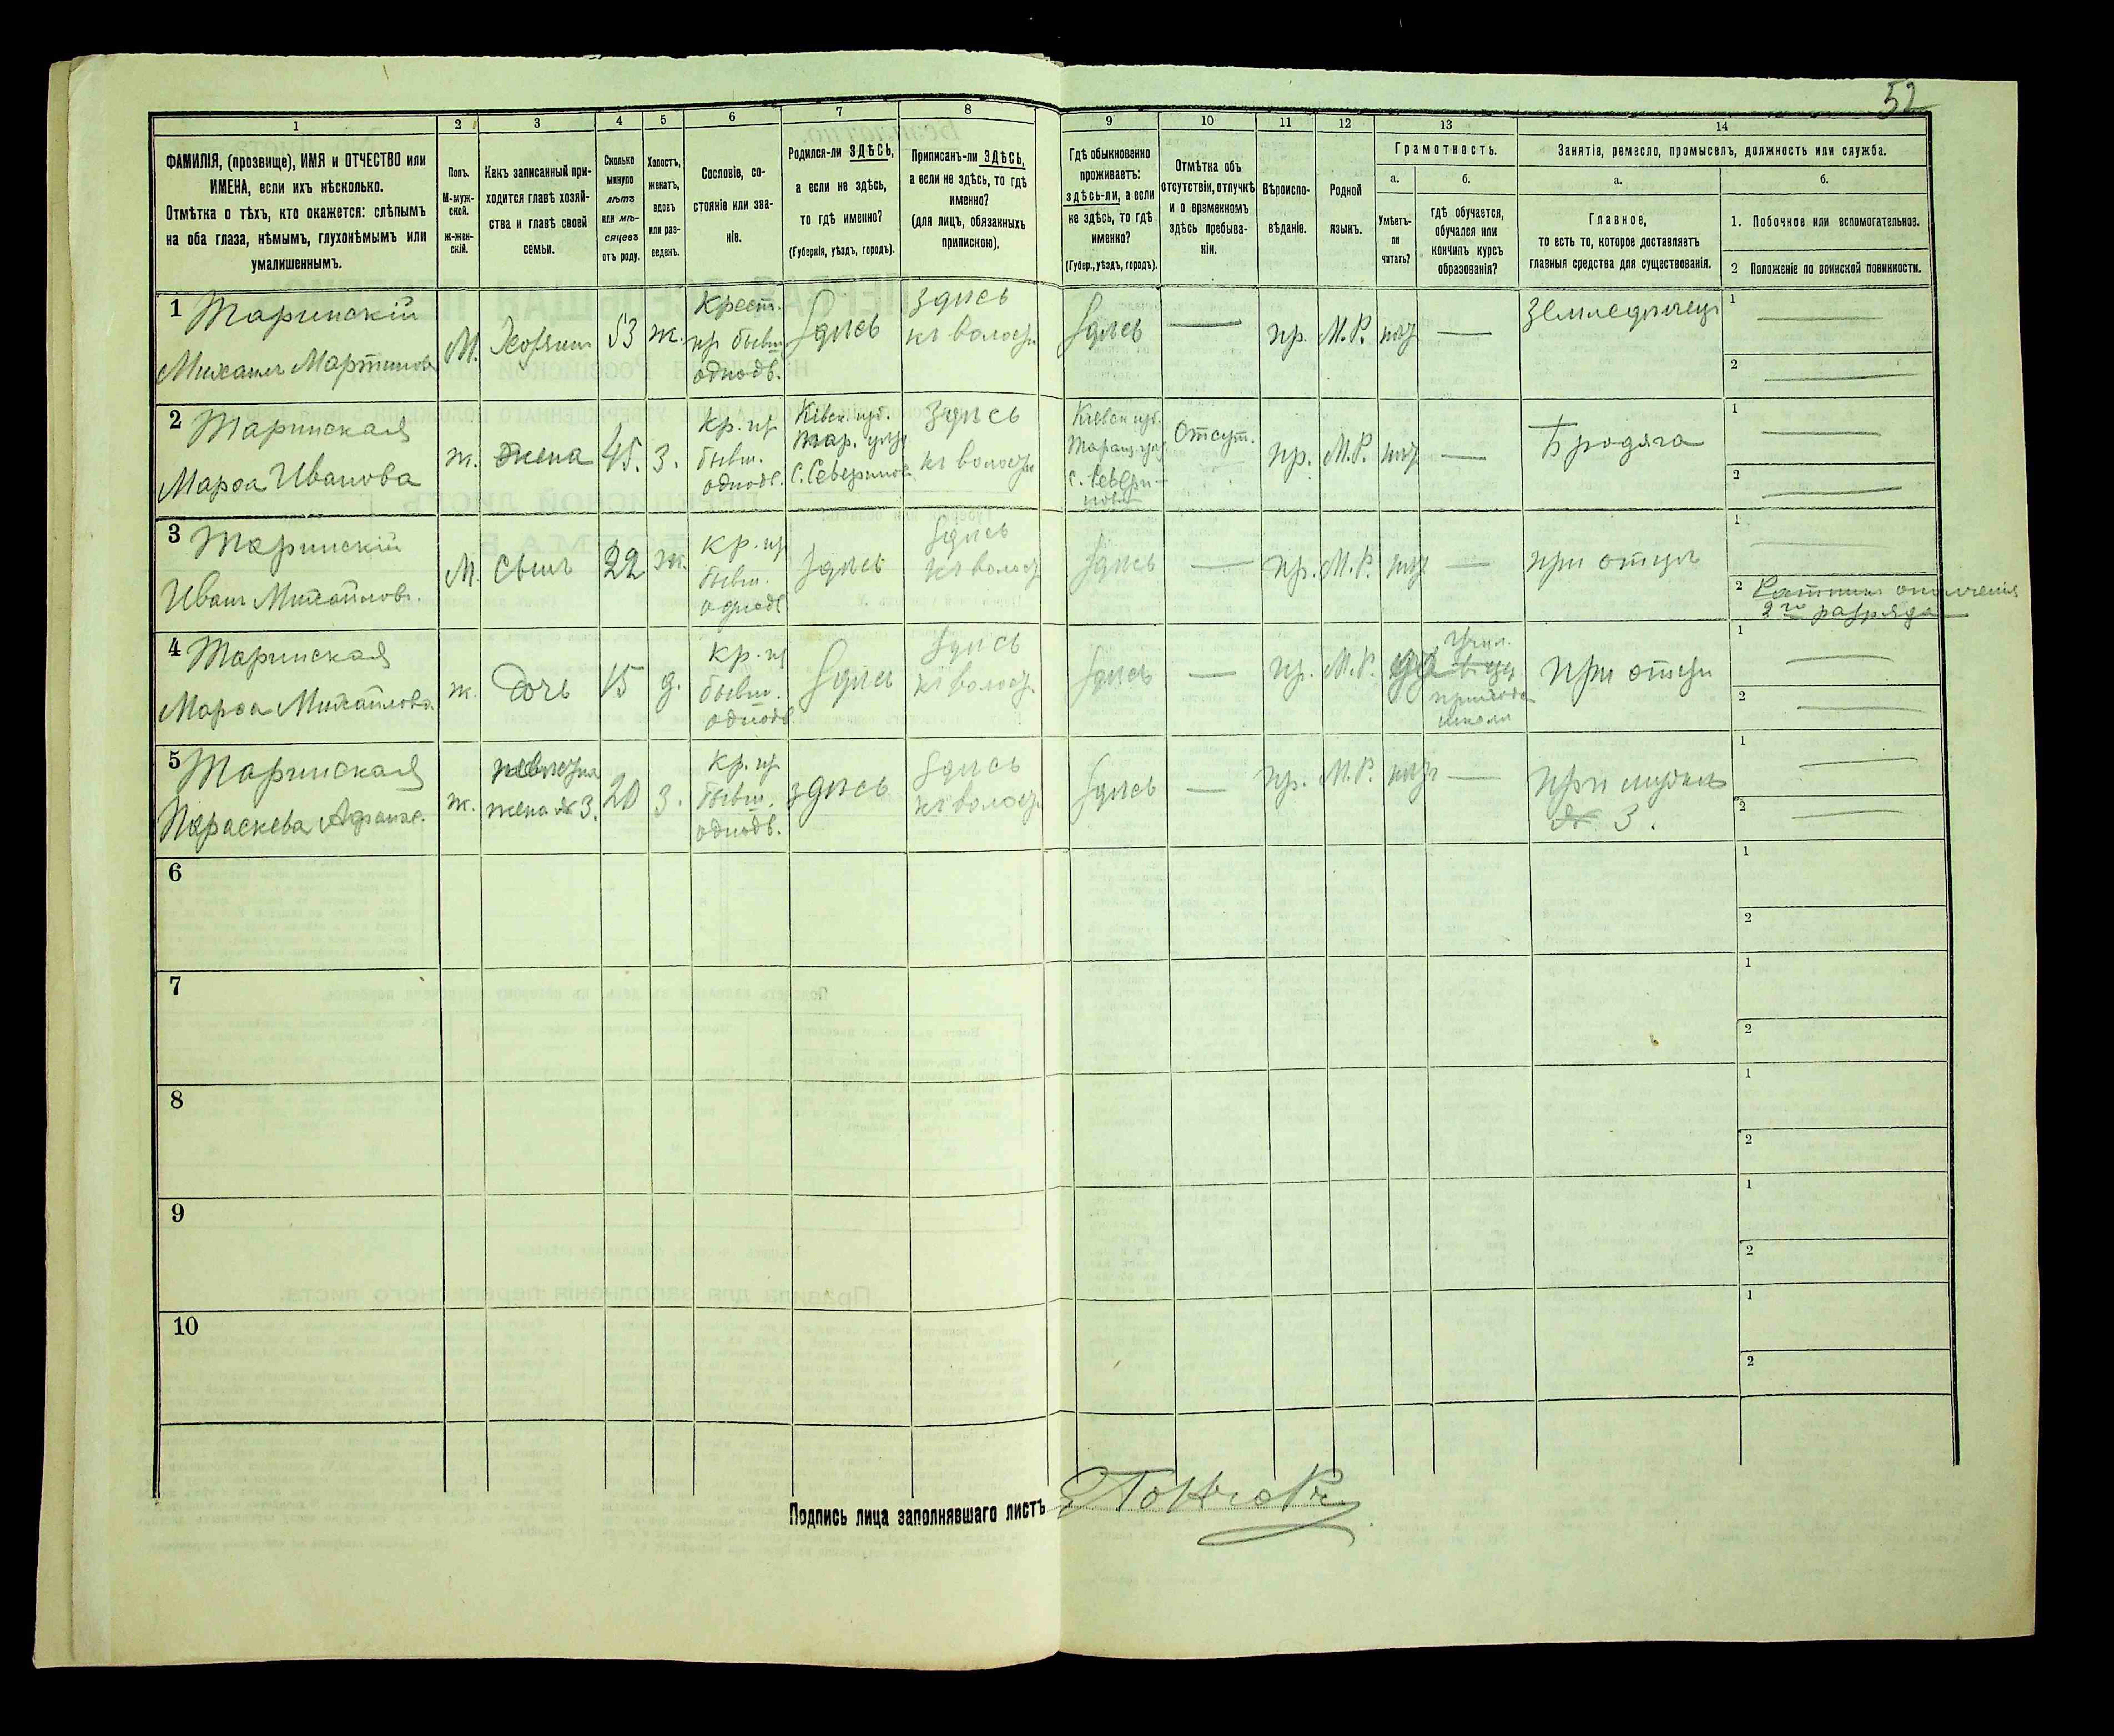 52
1 2 3 4 5 6 7 8 9 10 11 12 13 14
ФАМИЛІЯ, (прозвище), ИМЯ и ОТЧЕСТВО или
ИМЕНА, если ихъ нѣсколько.
Отмѣтка о тѣхъ, кто окажется: слѣпымъ
на оба глаза, нѣмымъ, глухонѣмымъ или
умалишеннымъ.
Полъ.
М-муж-
ской.
ж-жен-
скій.
Какъ записанный при-
ходится главѣ хозяй-
ства и главѣ своей
семьи.
Сколько
минуло
лѣтъ
или мѣ-
сяцевъ
отъ роду.
Холостъ,
женатъ,
вдовъ
или раз-
веденъ.
Сословіе, со-
стояніе или зва-
ніе.
Родился-ли ЗДѢСЬ,
а если не здѣсь,
то гдѣ именно?
(Губернія, уѣздъ, городъ).
Приписанъ-ли ЗДѢСЬ,
а если не здѣсь, то гдѣ
именно?
(для лицъ, обязанныхъ
припискою).
Гдѣ обыкновенно
проживаетъ:
здѣсь-ли, а если
не здѣсь, то гдѣ
именно?
(Губер., уѣздъ, городъ).
Отмѣтка объ
отсутствіи, отлучкѣ
и о временномъ
здѣсь пребыва-
ніи.
Вѣроиспо-
вѣданіе.
Родной
языкъ.
Грамотность.
а.
Умѣетъ-
ли
читать?
б.
гдѣ обучается,
обучался или
кончилъ курсъ
образованія?
Занятія, ремесло, промыселъ, должность или служба.
а.
Главное,
то есть то, которое доставляетъ
главныя средства для существованія.
б.
1. Побочное или вспомогательное.
2 Положеніе по воинской повинности.
1 Таринскій
Михаилъ Мартиновъ
М.
Хозяинъ
53
ж.
Крест.
из бывш.
однодв.
Здѣсь
здѣсь
къ волости
Здѣсь
—
пр.
М.Р.
нѣт
—
Земледѣлецъ
1 —
2 —
2 Таринская
Марѳа Иванова
ж.
жена
45.
з.
кр. из
бывш.
однодв.
Кіевск. губ.
Тар. уѣзд
с. Северинов.
здѣсь
къ волости
Кіевск. губ.
Таращ. уѣз.
с. Севери-
новк
Отсут.
пр.
М.Р.
нѣт
—
Бродяга
1 —
2 —
3 Таринскій
Иванъ Михайлов.
М.
Сынъ
22
ж.
кр. из
бывш.
однодв
Здѣсь
Здѣсь
къ волост
Здѣсь
—
пр.
М.Р.
нѣт
—
при отцѣ
1 —
2 Ратникъ ополченія
2го разряда
4 Таринская
Марѳа Михайлова
ж.
Дочь
15
д.
кр. из
бывш.
однодв
Здѣсь
Здѣсь
къ волост.
Здѣсь
—
пр.
М.Р.
да
школѣ
при отцѣ
1 —
2 —
5 Таринская
Параскева Афанас.
ж.
невѣстка
жена № 3.
20
з.
кр. из
бывш.
однодв.
здѣсь
Здѣсь
къ волост
Здѣсь
—
пр.
М.Р.
нѣт
—
При мужѣ
№ 3.
1 —
2 —
6
1
2
7
1
2
8
1
2
9
1
2
10
1
2
Подпись лица заполнявшаго листъ